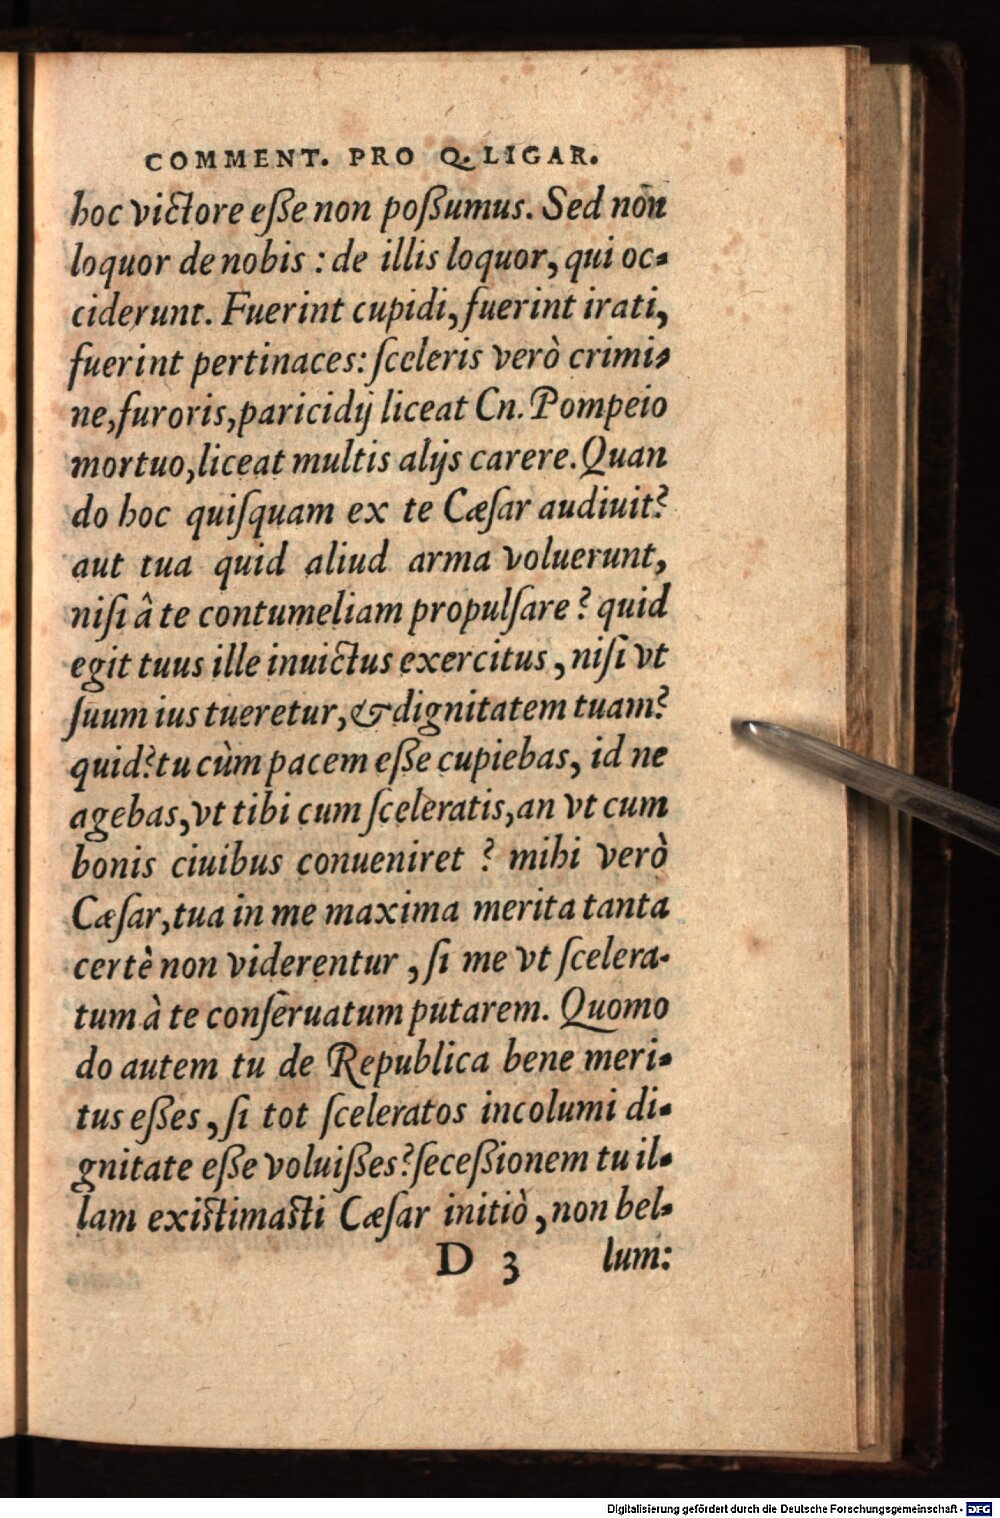 COMMENT. PRO Q. LIGAR.
hoc victore eſſe non poſſumus. Sed non
loquor de nobis : de illis loquor, qui oc-
ciderunt. Fuerint cupidi, fuerint irati,
fuerint pertinaces: ſceleris verò crimi-
ne, furoris, paricidij liceat Cn. Pompeio
mortuo, liceat multis alijs carere. Quan
do hoc quiſquam ex te Cæſar audiuit?
aut tua quid aliud arma voluerunt,
niſi â te contumeliam propulſare ? quid
egit tuus ille inuictus exercitus, niſi vt
ſuum ius tueretur, & dignitatem tuam?
quid? tu cùm pacem eſſe cupiebas, id ne
agebas, vt tibi cum ſceleratis, an vt cum
bonis ciuibus conueniret ? mihi verò
Cæſar, tua in me maxima merita tanta
certè non viderentur , ſi me vt ſcelera-
tum à te conſeruatum putarem. Quomo
do autem tu de Republica bene meri-
tus eſſes , ſi tot ſceleratos incolumi di-
gnitate eſſe voluiſſes? ſeceſſionem tu il-
lam existimasti Cæſar initiò , non bel-
D 3 lum:
Digitalisierung gefördert durch die Deutsche Forschungsgemeinschaft - DFG